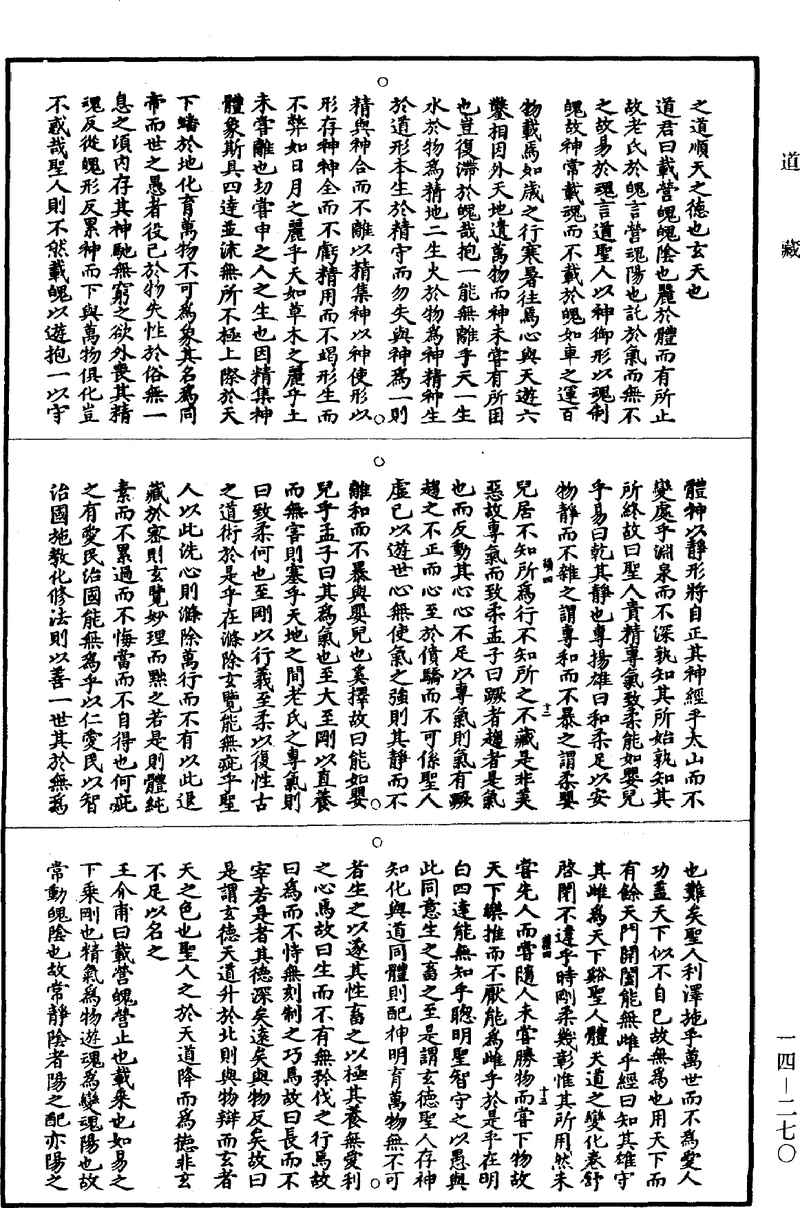 道藏
之道順天之德也玄天也
道君曰載營魄魄陰也麗於體而有所止
故老氏於魄言營魂陽也託於氣而無不
之故易於魂言遊聖人以神御形以魂制
魄故神常載魂而不載於魄如車之運百
物載焉如歲之行寒暑往焉心與天遊六
鑿相因外天地遺萬物而神未嘗有所困
也豈復滯於魄哉抱一能無離乎天一生
水於物為精地二生火於物為神精神生
於道形本生於精守而勿失與神為一則
精與神合而不離以精集神以神使形以
形存神神全而不虧精用而不竭形生而
不弊如日月之麗乎天如草木之麗乎土
未嘗離也切嘗申之人之生也因精集神
體象斯具四達並流無所不極上際於天
下蟠於地化育萬物不可為象其名為同
帝而世之愚者役己於物失性於俗無一
息之頃內存其神馳無窮之欲外喪其精
魂反從魄形反累神而下與萬物俱化豈
不惑哉聖人則不然載魄以遊抱一以守
體神以靜形將自正其神經乎太山而不
變處乎淵泉而不深孰知其所始孰知其
所終故曰聖人貴精專氣致柔能如嬰兒
乎易曰乾其靜也專揚雄曰和柔足以安
物靜而不雜之謂專和而不暴之謂柔嬰
兒居不知所為行不知所之不藏是非美
惡故專氣而致柔孟子曰蹶者趨者是氣
也而反動其心心不足以專氣則氣有蹶
趨之不正而心至於僨驕而不可係聖人
虛己以遊世心無使氣之強則其靜而不
雜和而不暴與嬰兒也奚擇故曰能如嬰
兒乎孟子曰其為氣也至大至剛以直養
而無害則塞乎天地之間老氏之專氣則
曰致柔何也至剛以行義至柔以復性古
之道術於是乎在滌除玄覽能無疵乎聖
人以此洗心則滌除萬行而不有以此退
藏於密則玄覽妙理而默之若是則體純
素而不累過而不悔當而不自得也何疵
之有愛民治國能無為乎以仁愛民以智
治國施教化修法則以善一世其於無為
也難矣聖人利澤施乎萬世而不為愛人
功蓋天下似不自己故無為也用天下而
有餘天門開闔能無雌乎經曰知其雄守
其雌為天下谿聖人體天道之變化卷舒
啓閉不違乎時剛柔幾彰惟其所用然未
嘗先人而嘗隨人未嘗勝物而嘗下物故
天下樂推而不厭能為雌乎於是乎在明
白四達能無知乎聰明聖智守之以愚與
此同意生之畜之至是謂玄德聖人存神
知化與道同體則配神明育萬物無不可
者生之以遂其性畜之以極其養無愛利
之心焉故曰生而不有無矜伐之行焉故
曰為而不恃無刻制之巧焉故曰長而不
宰若是者其德深矣遠矣與物反矣故曰
是謂玄德天道升於北則與物辯而玄者
天之色也聖人之於天道降而為德非玄
不足以名之
王介甫曰載營魄營止也載乘也如易之
下乘剛也精氣為物遊魂為變魂陽也故
常動魄陰也故常靜陰者陽之配亦陽之
一四—二七〇